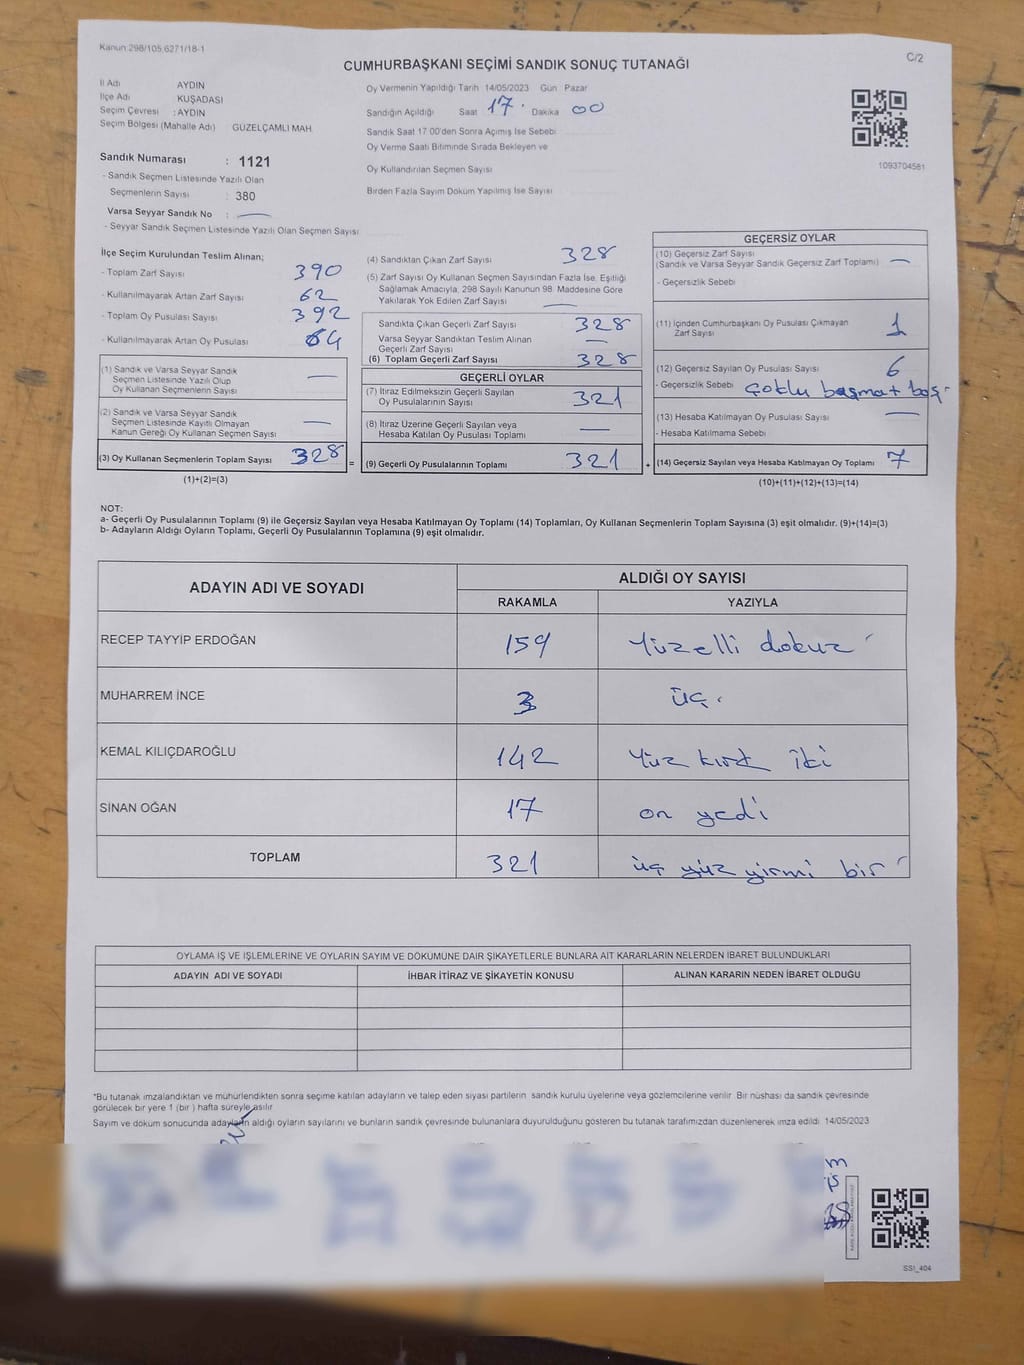 Kanun 298/105,6271/18-1
C/2
CUMHURBAŞKANI SEÇİMİ SANDIK SONUÇ TUTANAĞI
İl Adı AYDIN
İlçe Adı KUŞADASI
Seçim Çevresi : AYDIN
Seçim Bölgesi (Mahalle Adı) GÜZELÇAMLI MAH
Sandık Numarası : 1121
- Sandık Seçmen Listesinde Yazılı Olan
Seçmenlerin Sayısı : 380
Varsa Seyyar Sandık No : —
- Seyyar Sandık Seçmen Listesinde Yazılı Olan Seçmen Sayısı
Oy Vermenin Yapıldığı Tarih 14/05/2023 Gün Pazar
Sandığın Açıldığı Saat 17. Dakika 00
Sandık Saat 17 00'den Sonra Açımış İse Sebebi
Oy Verme Saati Bitiminde Sırada Bekleyen ve
Oy Kullandırılan Seçmen Sayısı
Birden Fazla Sayım Döküm Yapılmış İse Sayısı
1093704581
İlçe Seçim Kurulundan Teslim Alınan;
- Toplam Zarf Sayısı 390
- Kullanılmayarak Artan Zarf Sayısı 62
- Toplam Oy Pusulası Sayısı 392
- Kullanılmayarak Artan Oy Pusulası 64
(1) Sandık ve Varsa Seyyar Sandık
Seçmen Listesinde Yazılı Olup
Oy Kullanan Seçmenlerin Sayısı —
(2) Sandık ve Varsa Seyyar Sandık
Seçmen Listesinde Kayıtlı Olmayan
Kanun Gereği Oy Kullanan Seçmen Sayısı —
(3) Oy Kullanan Seçmenlerin Toplam Sayısı 328 =
(1)+(2)=(3)
(4) Sandıktan Çıkan Zarf Sayısı 328
(5) Zarf Sayısı Oy Kullanan Seçmen Sayısından Fazla İse, Eşitliği
Sağlamak Amacıyla, 298 Sayılı Kanunun 98. Maddesine Göre
Yakılarak Yok Edilen Zarf Sayısı —
Sandıkta Çıkan Geçerli Zarf Sayısı 328
Varsa Seyyar Sandıktan Teslim Alınan
Geçerli Zarf Sayısı —
(6) Toplam Geçerli Zarf Sayısı 328
GEÇERLİ OYLAR
(7) İtiraz Edilmeksizin Geçerli Sayılan
Oy Pusulalarının Sayısı 321
(8) İtiraz Üzerine Geçerli Sayılan veya
Hesaba Katılan Oy Pusulası Toplamı —
(9) Geçerli Oy Pusulalarının Toplamı 321 +
GEÇERSİZ OYLAR
(10) Geçersiz Zarf Sayısı
(Sandık ve Varsa Seyyar Sandık Geçersiz Zarf Toplamı) —
- Geçersizlik Sebebi
(11) İçinden Cumhurbaşkanı Oy Pusulası Çıkmayan
Zarf Sayısı 1
(12) Geçersiz Sayılan Oy Pusulası Sayısı 6
- Geçersizlik Sebebi Çoklu basma + boş
(13) Hesaba Katılmayan Oy Pusulası Sayısı —
- Hesaba Katılmama Sebebi
(14) Geçersiz Sayılan veya Hesaba Katılmayan Oy Toplamı 7
(10)+(11)+(12)+(13)=(14)
NOT:
a- Geçerli Oy Pusulalarının Toplamı (9) ile Geçersiz Sayılan veya Hesaba Katılmayan Oy Toplamı (14) Toplamları, Oy Kullanan Seçmenlerin Toplam Sayısına (3) eşit olmalıdır. (9)+(14)=(3)
b- Adayların Aldığı Oyların Toplamı, Geçerli Oy Pusulalarının Toplamına (9) eşit olmalıdır.
ADAYIN ADI VE SOYADI ALDIĞI OY SAYISI
RAKAMLA YAZIYLA
RECEP TAYYİP ERDOĞAN 159 Yüzelli dokuz
MUHARREM İNCE 3 üç.
KEMAL KILIÇDAROĞLU 142 Yüz kırk iki
SİNAN OĞAN 17 on yedi
TOPLAM 321 üç yüz yirmi bir
OYLAMA İŞ VE İŞLEMLERİNE VE OYLARIN SAYIM VE DÖKÜMÜNE DAİR ŞİKAYETLERLE BUNLARA AİT KARARLARIN NELERDEN İBARET BULUNDUKLARI
ADAYIN ADI VE SOYADI İHBAR İTİRAZ VE ŞİKAYETİN KONUSU ALINAN KARARIN NEDEN İBARET OLDUĞU
*Bu tutanak imzalandıktan ve mühürlendikten sonra seçime katılan adayların ve talep eden siyasi partilerin sandık kurulu üyelerine veya gözlemcilerine verilir Bir nüshası da sandık çevresinde
görülecek bir yere 1 (bir ) hafta süreyle asılır
Sayım ve döküm sonucunda adayların aldığı oyların sayılarını ve bunların sandık çevresinde bulunanlara duyurulduğunu gösteren bu tutanak tarafımızdan düzenlenerek imza edildi. 14/05/2023
SSI_404